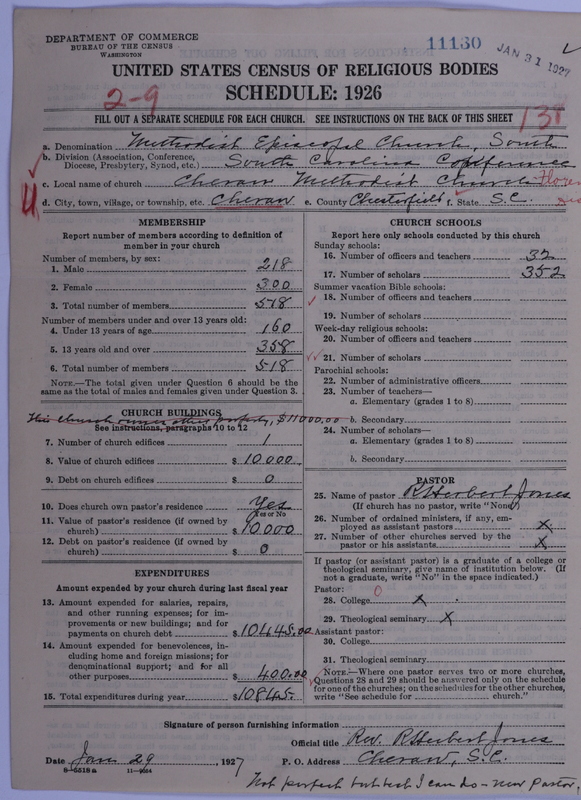 DEPARTMENT OF COMMERCE
BUREAU OF THE CENSUS
WASHINGTON
11130
JAN 31 1927
UNITED STATES CENSUS OF RELIGIOUS BODIES
SCHEDULE: 1926
2-9
FILL OUT A SEPARATE SCHEDULE FOR EACH CHURCH. SEE INSTRUCTIONS ON THE BACK OF THIS SHEET
131
a. Denomination Methodist Episcopal Church, South
b. Division (Association, Conference, Diocese, Presbytery, Synod, etc.) South Carolina Conference
c. Local name of church Cheraw Methodist Church
d. City, town, village, or township, etc. Cheraw e. County Chesterfield f. State S.C.
MEMBERSHIP
Report number of members according to definition of member in your church
Number of members, by sex:
1. Male 218
2. Female 300
3. Total number of members 518
Number of members under and over 13 years old:
4. Under 13 years of age 160
5. 13 years old and over 358
6. Total number of members 518
NOTE.—The total given under Question 6 should be the same as the total of males and females given under Question 3.
CHURCH BUILDINGS
This church owns other property, $11000.00
See instructions, paragraphs 10 to 12
7. Number of church edifices 1
8. Value of church edifices $ 10,000.
9. Debt on church edifices $ 0
10. Does church own pastor's residence? Yes
Yes or No
11. Value of pastor's residence (if owned by church) $ 10,000
12. Debt on pastor's residence (if owned by church) $ 0
EXPENDITURES
Amount expended by your church during last fiscal year
13. Amount expended for salaries, repairs, and other running expenses; for improvements or new buildings; and for payments on church debt $ 10445.00
14. Amount expended for benevolences, including home and foreign missions; for denominational support; and for all other purposes $ 400.00
15. Total expenditures during year $ 10845.
CHURCH SCHOOLS
Report here only schools conducted by this church
Sunday schools:
16. Number of officers and teachers 32
17. Number of scholars 352
Summer vacation Bible schools:
18. Number of officers and teachers
19. Number of scholars
Week-day religious schools:
20. Number of officers and teachers
21. Number of scholars
Parochial schools:
22. Number of administrative officers
23. Number of teachers—
a. Elementary (grades 1 to 8)
b. Secondary
24. Number of scholars—
a. Elementary (grades 1 to 8)
b. Secondary
PASTOR
25. Name of pastor R Herbert Jones
(If church has no pastor, write "None")
26. Number of ordained ministers, if any, employed as assistant pastors x
27. Number of other churches served by the pastor or his assistants x
If pastor (or assistant pastor) is a graduate of a college or theological seminary, give name of institution below. (If not a graduate, write "No" in the space indicated.)
Pastor: 0
28. College x
29. Theological seminary x
Assistant pastor:
30. College
31. Theological seminary
NOTE.—Where one pastor serves two or more churches, Questions 28 and 29 should be answered only on the schedule for one of the churches; on the schedules for the other churches, write "See schedule for church."
Signature of person furnishing information
Official title Rev. R Herbert Jones
Date Jan 29 1927 P. O. Address Cheraw, S.C.
Not perfect but best I can do - new pastor,